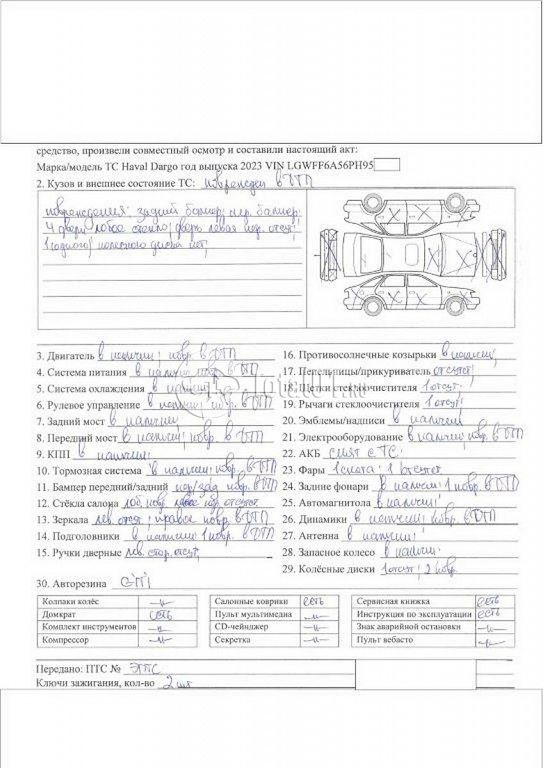 средство, произвели совместный осмотр и составили настоящий акт:
Марка/модель ТС Haval Dargo год выпуска 2023 VIN LGWFF6A56PH95
2. Кузов и внешнее состояние ТС: поврежден в ДТП
повреждения: задний бампер, пер. бампер,
4 двери, лобое стекло, дверь левая пер. отсут,
1 одного колесного диска нет,
3. Двигатель в наличии, повр. в ДТП
4. Система питания в наличии повр. в ДТП
5. Система охлаждения в наличии
6. Рулевое управление в наличии, повр. в ДТП
7. Задний мост в наличии
8. Передний мост в наличии, повр. в ДТП
9. КПП в наличии
10. Тормозная система в наличии повр. в ДТП
11. Бампер передний/задний пер/зад повр. в ДТП
12. Стёкла салона лоб. повр. левое пер. отсутст
13. Зеркала лев. отсут, правое повр. в ДТП
14. Подголовники в наличии 1 повр. в ДТП
15. Ручки дверные лев. стор. отсут,
16. Противосолнечные козырьки в наличии
17. Пепельницы/прикуриватель отсутст
18. Щётки стеклоочистителя 1 отсут.
19. Рычаги стеклоочистителя 1 отсут.
20. Эмблемы/надписи в наличии
21. Электрооборудование в наличии повр. в ДТП
22. АКБ снят с ТС
23. Фары 1 снята, 1 отсутст
24. Задние фонари в наличии 1 повр. в ДТП
25. Автомагнитола в наличии
26. Динамики в наличии повр. в ДТП
27. Антенна в наличии
28. Запасное колесо в наличии
29. Колёсные диски 1 отсут, 2 повр.
30. Авторезина
Колпаки колёс -//-
Домкрат есть
Комплект инструментов -//-
Компрессор -//-
Салонные коврики есть
Пульт мультимедиа -//-
CD-чейнджер -//-
Секретка -//-
Сервисная книжка есть
Инструкция по эксплуатации есть
Знак аварийной остановки -//-
Пульт вебасто -//-
Передано: ПТС № ЭПТС
Ключи зажигания, кол-во 2 шт